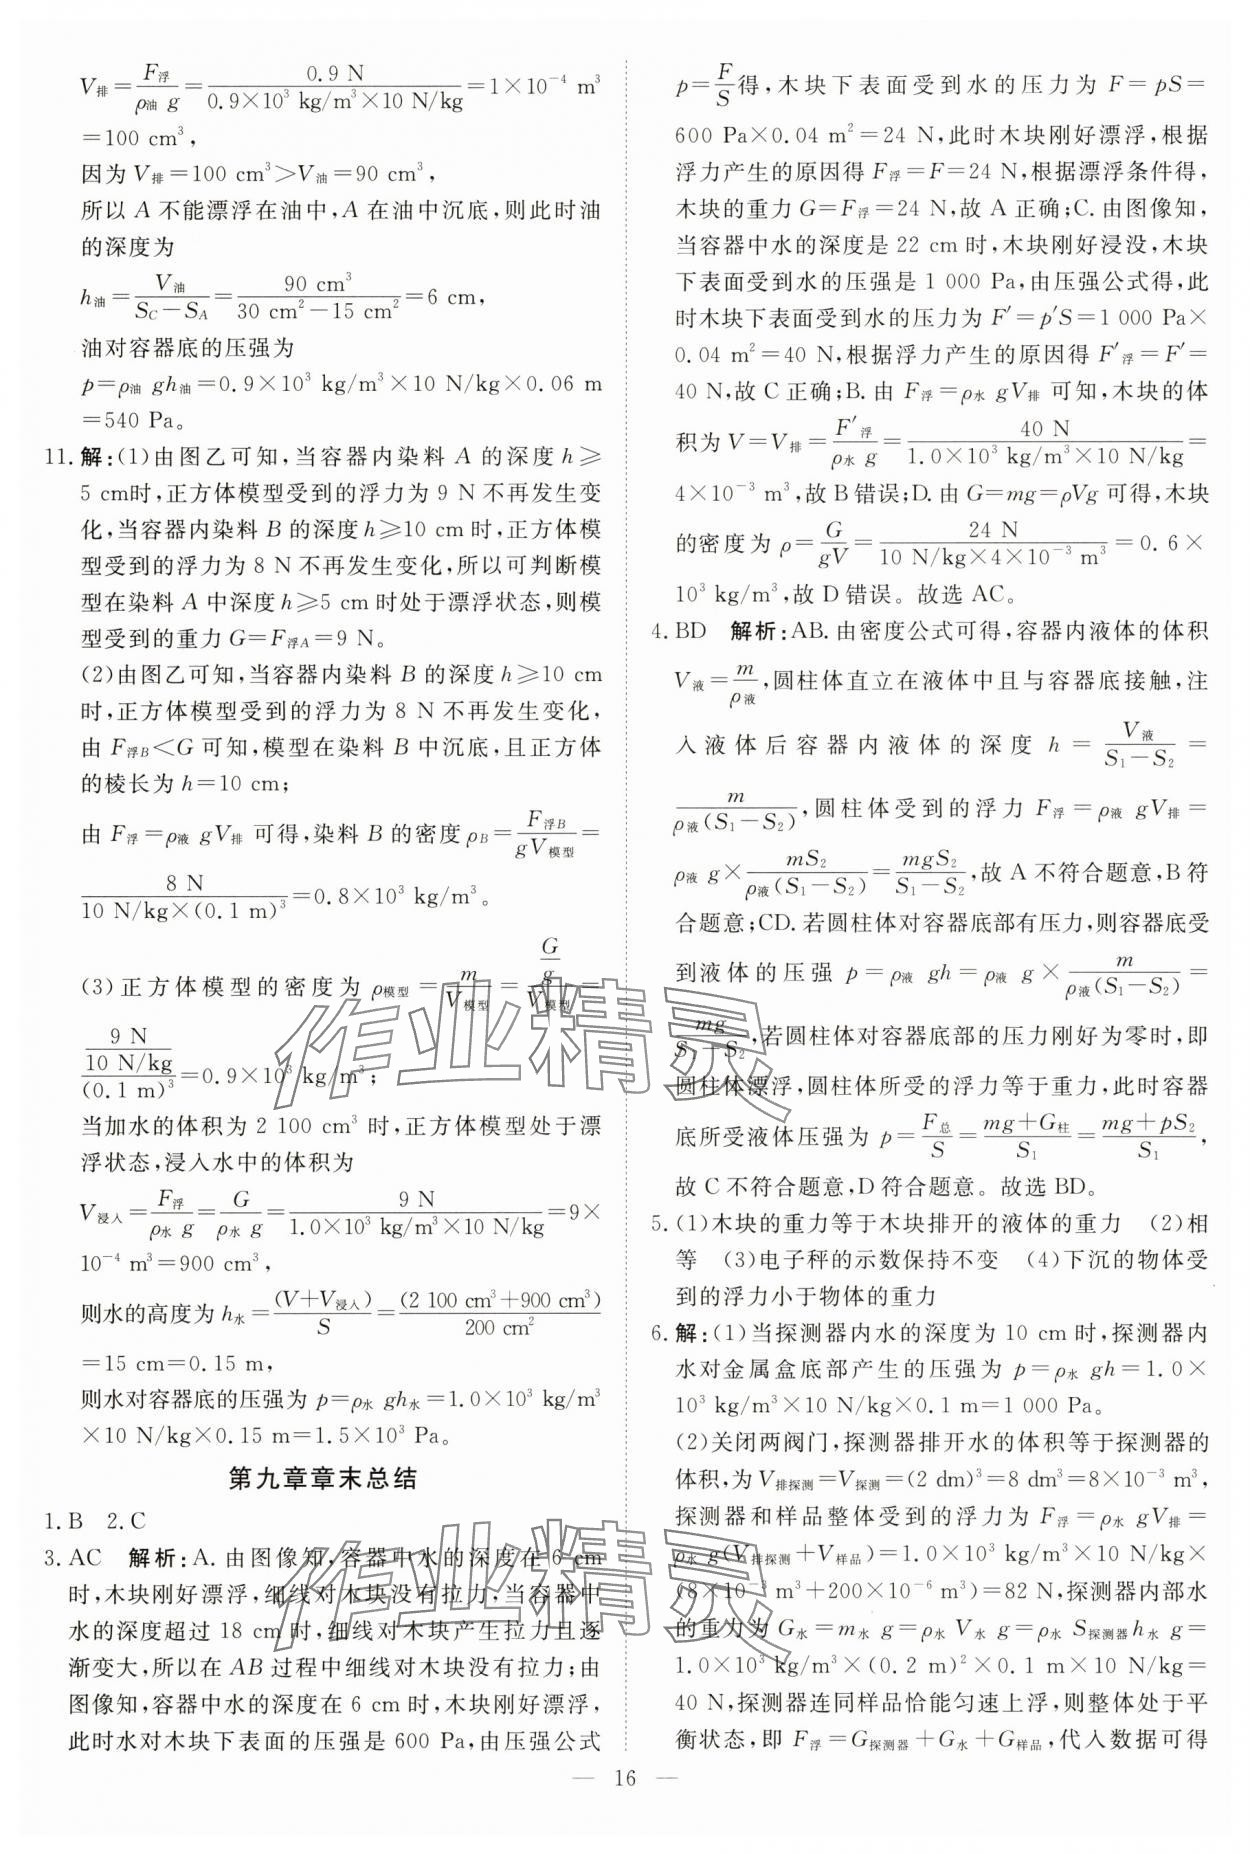 V排=F浮/(ρ油 g)=0.9 N/(0.9×10³ kg/m³×10 N/kg)=1×10⁻⁴ m³
=100 cm³,
因为 V排=100 cm³>V油=90 cm³,
所以 A 不能漂浮在油中,A 在油中沉底,则此时油
的深度为
h油=V油/(S_C-S_A)=90 cm³/(30 cm²-15 cm²)=6 cm,
油对容器底的压强为
p=ρ油 gh油=0.9×10³ kg/m³×10 N/kg×0.06 m
=540 Pa。
11.解:(1)由图乙可知,当容器内染料 A 的深度 h≥
5 cm时,正方体模型受到的浮力为 9 N 不再发生变
化,当容器内染料 B 的深度h≥10 cm 时,正方体模
型受到的浮力为 8 N 不再发生变化,所以可判断模
型在染料 A 中深度h≥5 cm 时处于漂浮状态,则模
型受到的重力 G=F浮A=9 N。
(2)由图乙可知,当容器内染料 B 的深度 h≥10 cm
时,正方体模型受到的浮力为 8 N 不再发生变化,
由 F浮B<G 可知,模型在染料 B 中沉底,且正方体
的棱长为 h=10 cm;
由 F浮=ρ液 gV排 可得,染料 B 的密度 ρB=F浮B/(gV模型)=
8 N/(10 N/kg×(0.1 m)³)=0.8×10³ kg/m³。
(3)正方体模型的密度为 ρ模型=m/V模型=(G/g)/V模型=
(9 N/10 N/kg)/(0.1 m)³=0.9×10³ kg/m³;
当加水的体积为 2 100 cm³ 时,正方体模型处于漂
浮状态,浸入水中的体积为
V浸入=F浮/(ρ水 g)=G/(ρ水 g)=9 N/(1.0×10³ kg/m³×10 N/kg)=9×
10⁻⁴ m³=900 cm³,
则水的高度为 h水=(V+V浸入)/S=(2 100 cm³+900 cm³)/200 cm²
=15 cm=0.15 m,
则水对容器底的压强为 p=ρ水 gh水=1.0×10³ kg/m³
×10 N/kg×0.15 m=1.5×10³ Pa。
第九章章末总结
1.B 2.C
3.AC 解析:A.由图像知,容器中水的深度在 6 cm
时,木块刚好漂浮,细线对木块没有拉力,当容器中
水的深度超过 18 cm 时,细线对木块产生拉力且逐
渐变大,所以在 AB 过程中细线对木块没有拉力;由
图像知,容器中水的深度在 6 cm 时,木块刚好漂浮,
此时水对木块下表面的压强是 600 Pa,由压强公式
p=F/S得,木块下表面受到水的压力为 F=pS=
600 Pa×0.04 m²=24 N,此时木块刚好漂浮,根据
浮力产生的原因得 F浮=F=24 N,根据漂浮条件得,
木块的重力 G=F浮=24 N,故 A 正确;C.由图像知,
当容器中水的深度是 22 cm 时,木块刚好浸没,木块
下表面受到水的压强是 1 000 Pa,由压强公式得,此
时木块下表面受到水的压力为 F′=p′S=1 000 Pa×
0.04 m²=40 N,根据浮力产生的原因得 F′浮=F′=
40 N,故 C 正确;B.由 F浮=ρ水 gV排 可知,木块的体
积为 V=V排=F′浮/(ρ水 g)=40 N/(1.0×10³ kg/m³×10 N/kg)=
4×10⁻³ m³,故 B 错误;D.由 G=mg=ρVg 可得,木块
的密度为 ρ=G/(gV)=24 N/(10 N/kg×4×10⁻³ m³)=0.6×
10³ kg/m³,故 D 错误。故选 AC。
4.BD 解析:AB.由密度公式可得,容器内液体的体积
V液=m/ρ液,圆柱体直立在液体中且与容器底接触,注
入液体后容器内液体的深度 h=V液/(S₁-S₂)=
m/(ρ液(S₁-S₂)),圆柱体受到的浮力 F浮=ρ液 gV排=
ρ液 g×mS₂/(ρ液(S₁-S₂))=mgS₂/(S₁-S₂),故 A 不符合题意,B 符
合题意;CD.若圆柱体对容器底部有压力,则容器底受
到液体的压强 p=ρ液 gh=ρ液 g×m/(ρ液(S₁-S₂))=
mg/(S₁-S₂),若圆柱体对容器底部的压力刚好为零时,即
圆柱体漂浮,圆柱体所受的浮力等于重力,此时容器
底所受液体压强为 p=F总/S=(mg+G柱)/S₁=(mg+pS₂)/S₁,
故 C 不符合题意,D 符合题意。故选 BD。
5.(1)木块的重力等于木块排开的液体的重力 (2)相
等 (3)电子秤的示数保持不变 (4)下沉的物体受
到的浮力小于物体的重力
6.解:(1)当探测器内水的深度为 10 cm 时,探测器内
水对金属盒底部产生的压强为 p=ρ水 gh=1.0×
10³ kg/m³×10 N/kg×0.1 m=1 000 Pa。
(2)关闭两阀门,探测器排开水的体积等于探测器的
体积,为 V排探测=V探测=(2 dm)³=8 dm³=8×10⁻³ m³,
探测器和样品整体受到的浮力为 F浮=ρ水 gV排=
ρ水 g(V排探测+V样品)=1.0×10³ kg/m³×10 N/kg×
(8×10⁻³ m³+200×10⁻⁶ m³)=82 N,探测器内部水
的重力为 G水=m水 g=ρ水 V水 g=ρ水 S探测器h水 g=
1.0×10³ kg/m³×(0.2 m)²×0.1 m×10 N/kg=
40 N,探测器连同样品恰能匀速上浮,则整体处于平
衡状态,即 F浮=G探测器+G水+G样品,代入数据可得
— 16 —
作业精灵
作业精灵